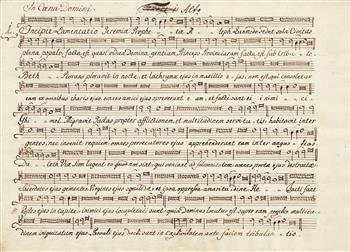 In Cœna Domini. Alto
Incipit Lamentatio Jeremiæ Prophetæ Aleph Quomodo sedet sola Civitas
plena populo; facta est quasi vidua Domina gentium: Princeps Provinciarum facta est sub tributo.
Beth Plorans ploravit in nocte, et lachrymæ ejus in maxillis ejus; non est qui consoletur
eam ex omnibus charis ejus, omnes amici ejus spreverunt eam, et facti sunt ei inimici.
Ghimel Migravit Judas propter afflictionem, et multitudinem servitutis; habitavit inter
gentes, nec invenit requiem: omnes persecutores ejus apprehenderunt eam inter angustias
Daleth Viæ Sion lugent, eo quod non sint, qui veniant ad solemnitatem: omnes portæ ejus destructæ
Sacerdotes ejus gementes, Virgines ejus squalidæ, et ipsa oppressa amaritudine. He Facti sunt
hostes ejus in capite, inimici ejus locupletati sunt: quia Dominus locutus est super eam propter multitu
dinem iniquitatum ejus; Parvuli ejus ducti sunt in captivitatem ante faciem tribulantis.